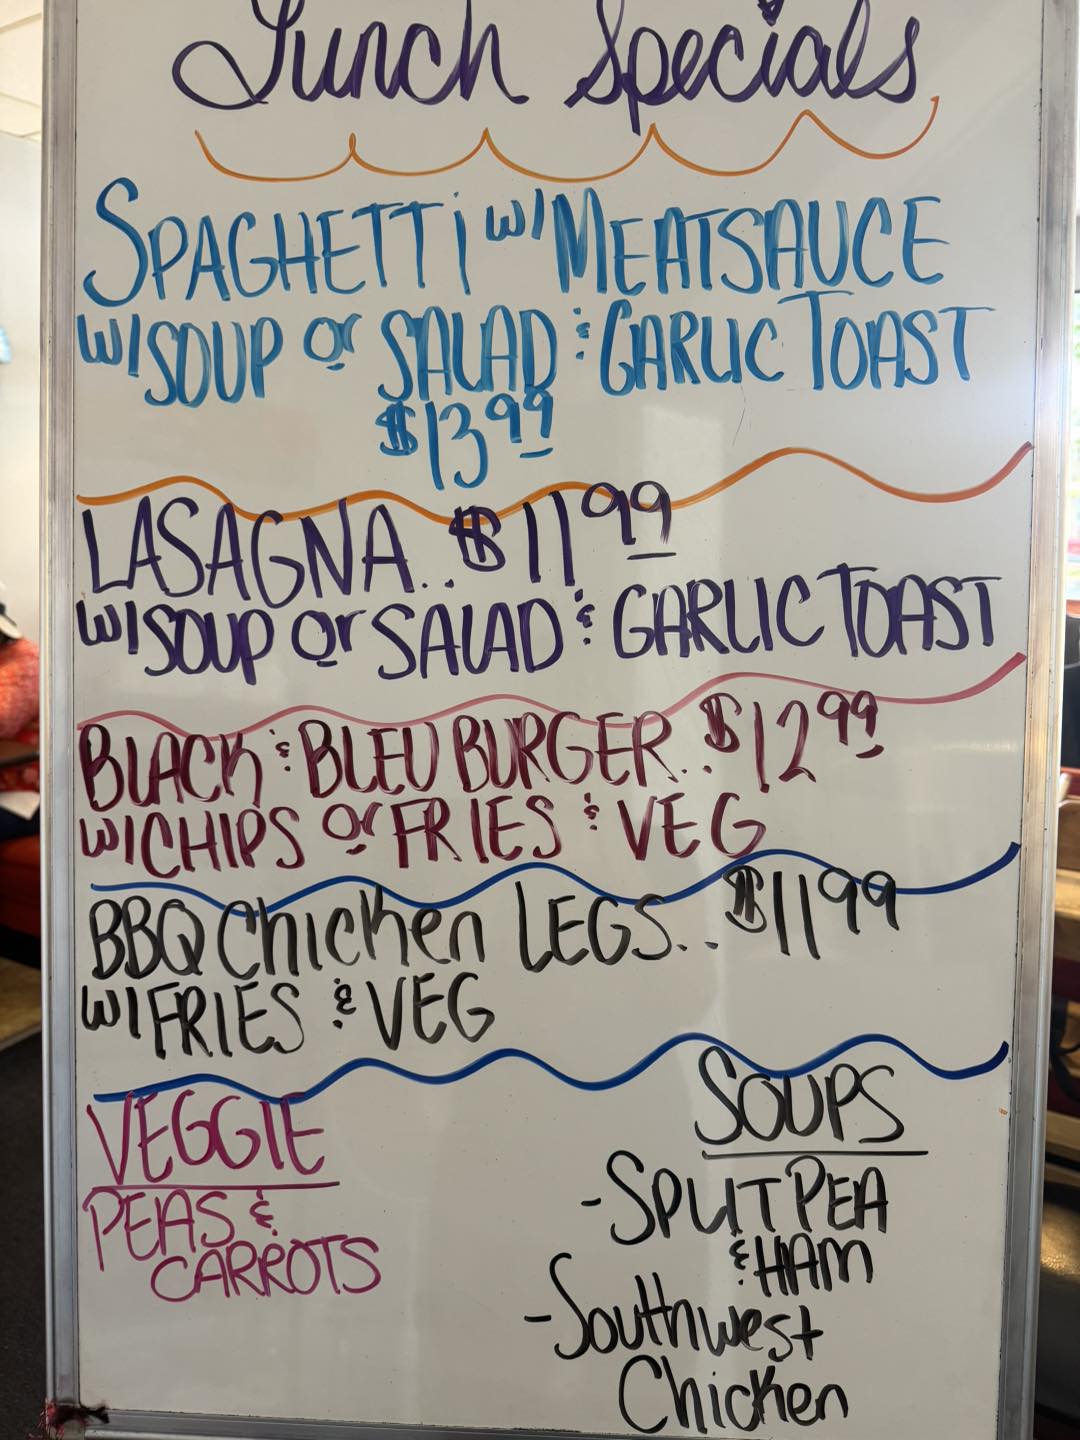 Lunch Specials
SPAGHETTi w/ MEATSAUCE
w/SOUP or SALAD & GARLIC TOAST
$13.99
LASAGNA.. $11.99
w/SOUP or SALAD & GARLIC TOAST
BLACK & BLEU BURGER.. $12.99
w/CHIPS or FRIES & VEG
BBQ Chicken LEGS.. $11.99
w/FRIES & VEG
VEGGIE
PEAS &
CARROTS
SOUPS
-SPLIT PEA
& HAM
-Southwest
Chicken